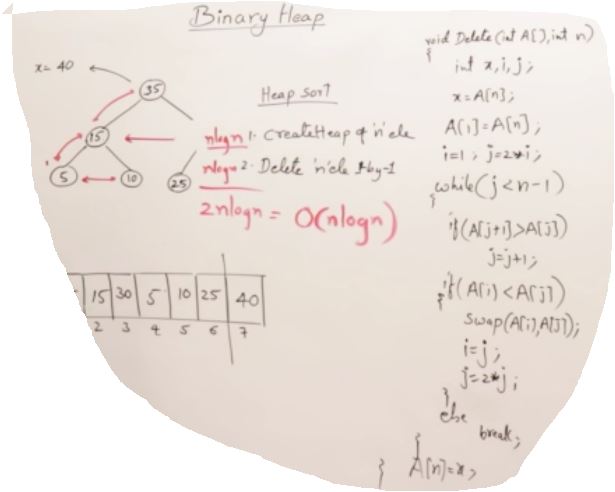 Binary Heap
x= 40
35
15
5
10
25
Heap Sort
nlogn 1. Create Heap of 'n' ele
nlogn 2. Delete 'n' ele 1-by-1
2nlogn = O(nlogn)
15 30 5 10 25 40
2 3 4 5 6 7
void Delete (int A[], int n)
{
int x,i,j;
x=A[n];
A[1]=A[n];
i=1; j=2*i;
while(j<n-1)
{
if(A[j+1]>A[j])
j=j+1;
if(A[i]<A[j])
{
swap(A[i],A[j]);
i=j;
j=2*j;
}
else
break;
}
} A[n]=x;